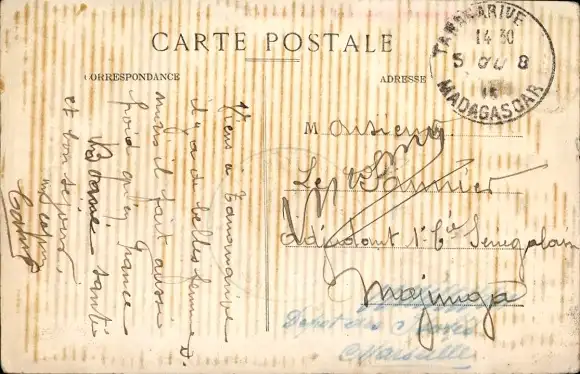 CARTE POSTALE
CORRESPONDANCE
ADRESSE
TANANARIVE
14 30
5
8
15
MADAGASCAR
Viens à Tananarive
il y a de belles femmes
mais il fait aussi
froid qu'en France
Bonne santé
et bon séjour
Monsieur
Le Saunier
Adjudant 1e Cie Senegalais
Majunga
Depot des
Marseille